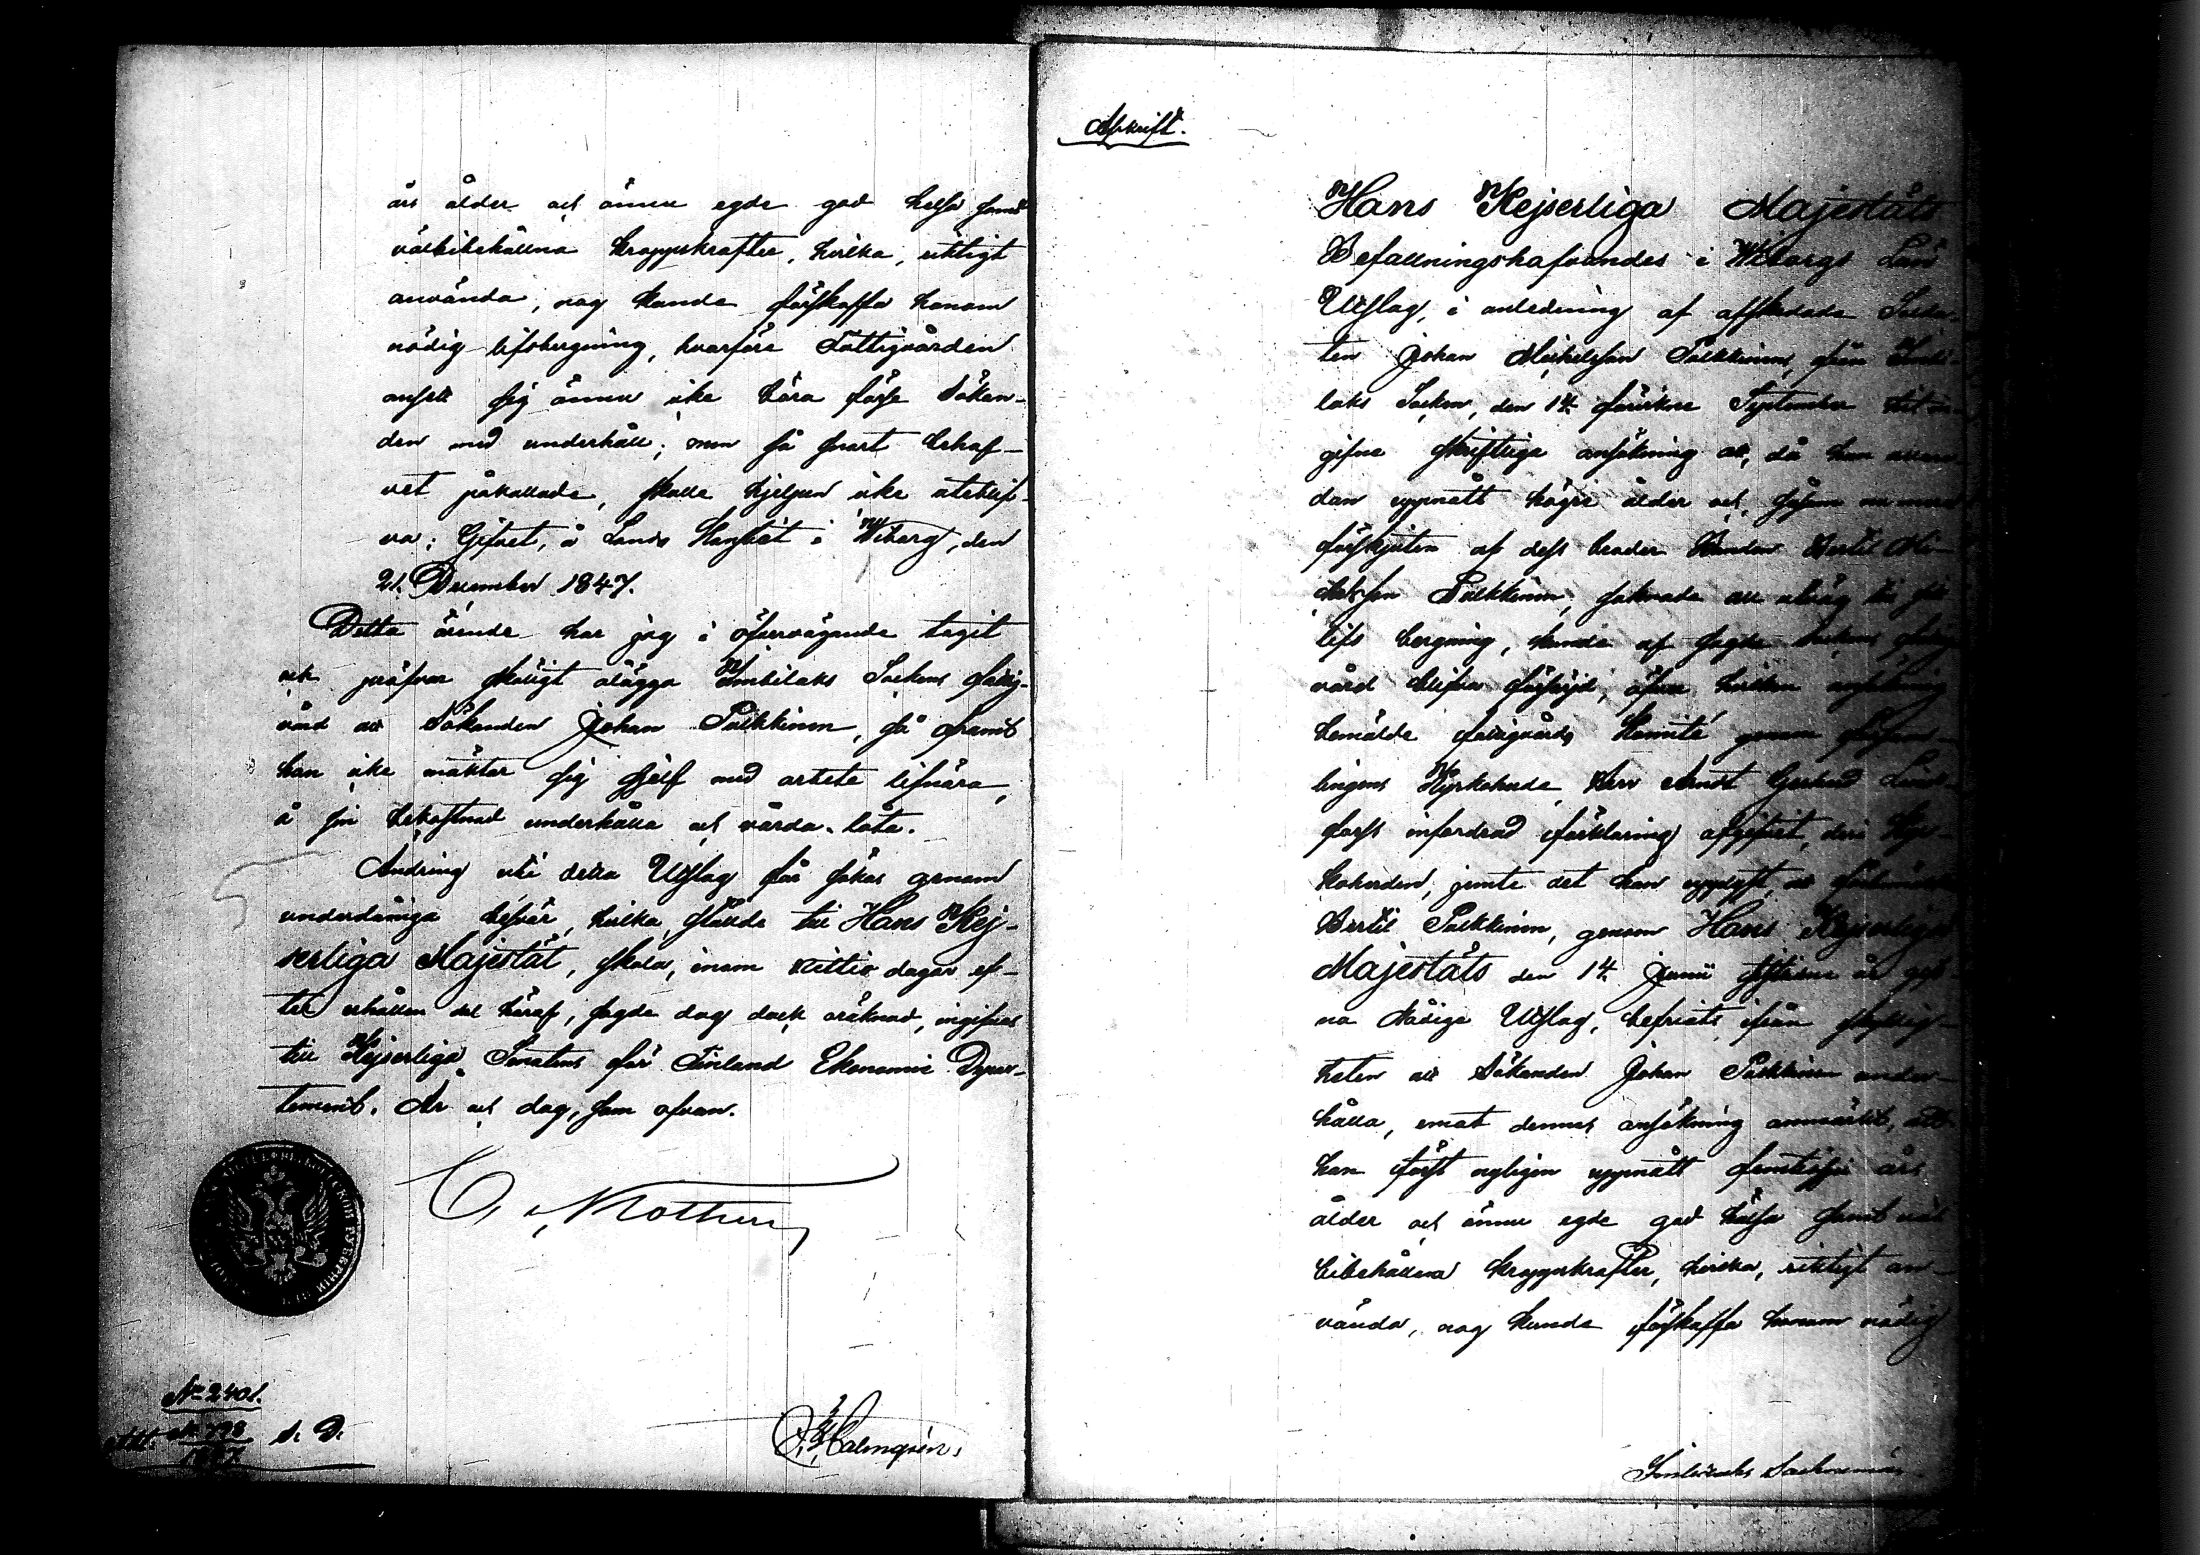 års ålder och ännu egde god helsa samt
välbibehållna kroppskrafter, hvilka, riktigt
använda, nog kunde förskaffa honom
nödig lifsbergning, hvarföre Fattigvården
ansett sig ännu icke böra förse Sökan-
den med underhåll; men så snart behof-
vet påkallade, skulle hjelpen icke uteblif-
va; Gifvet, å Lands Kansliet i Wiborg, den
21. December 1847.
Detta ärende har jag i öfvervägande tagit
och pröfvar skäligt ålägga Imbilaks Sockens fattig-
vård att Sökanden Johan Pulkkinen, så framt
han icke mäktar sig sjelf med arbete lifnära,
å sin bekostnad underhålla och vårda låta.
Ändring uti detta Utslag får sökas genom
underdåniga besvär, hvilka, stälde till Hans Kej-
serliga Majestät, skola, inom trettio dagar ef-
ter erhållen del häraf, sagde dag dock oräknad, ingifvas
till Kejserliga Senatens för Finland Ekonomie Depar-
tement. År och dag, som ofvan.
C. v Kothen
No 2401.
S. D.
Malmgrén.
Afskrift.
Hans Kejserliga Majestäts
Befallningshafvandes i Wiborgs Län
Utslag, i anledning af afskedade Solda-
ten Johan Michelsson Pulkkinens, från Imbi-
laks Socken, den 14. förvikne September hit in-
gifne skriftliga ansökning att, då han allare-
dan uppnått högre ålder och, såsom
förskjuten af dess broder Bonden Bertil Mi-
chelsson Pulkkinen, saknade all utväg till sin
lifs bergning, kunde af sagde Sockens fattig-
vård blifva försörjd, öfver hvilken ansökning
bemälde fattigvårds Komité genom
lingens Kyrkoherde, Herr Arndt Gerhard
infordrad förklaring afgifvit, deri Kyr-
koherden, jemte det han upplyst, att förbemälde
Bertil Pulkkinen, genom Hans Kejserliga
Majestäts den 14. Junii sistlidne år gif-
na Nådiga Utslag, befriats ifrån skyldig-
heten att Sökanden Johan Pulkkinen under-
hålla, emot dennes ansökning anmärkt, att
han först nyligen uppnått femtiosju års
ålder och ännu egde god helsa samt väl
bibehållna kroppskrafter, hvilka, riktigt an-
vända, nog kunde förskaffa honom nödig